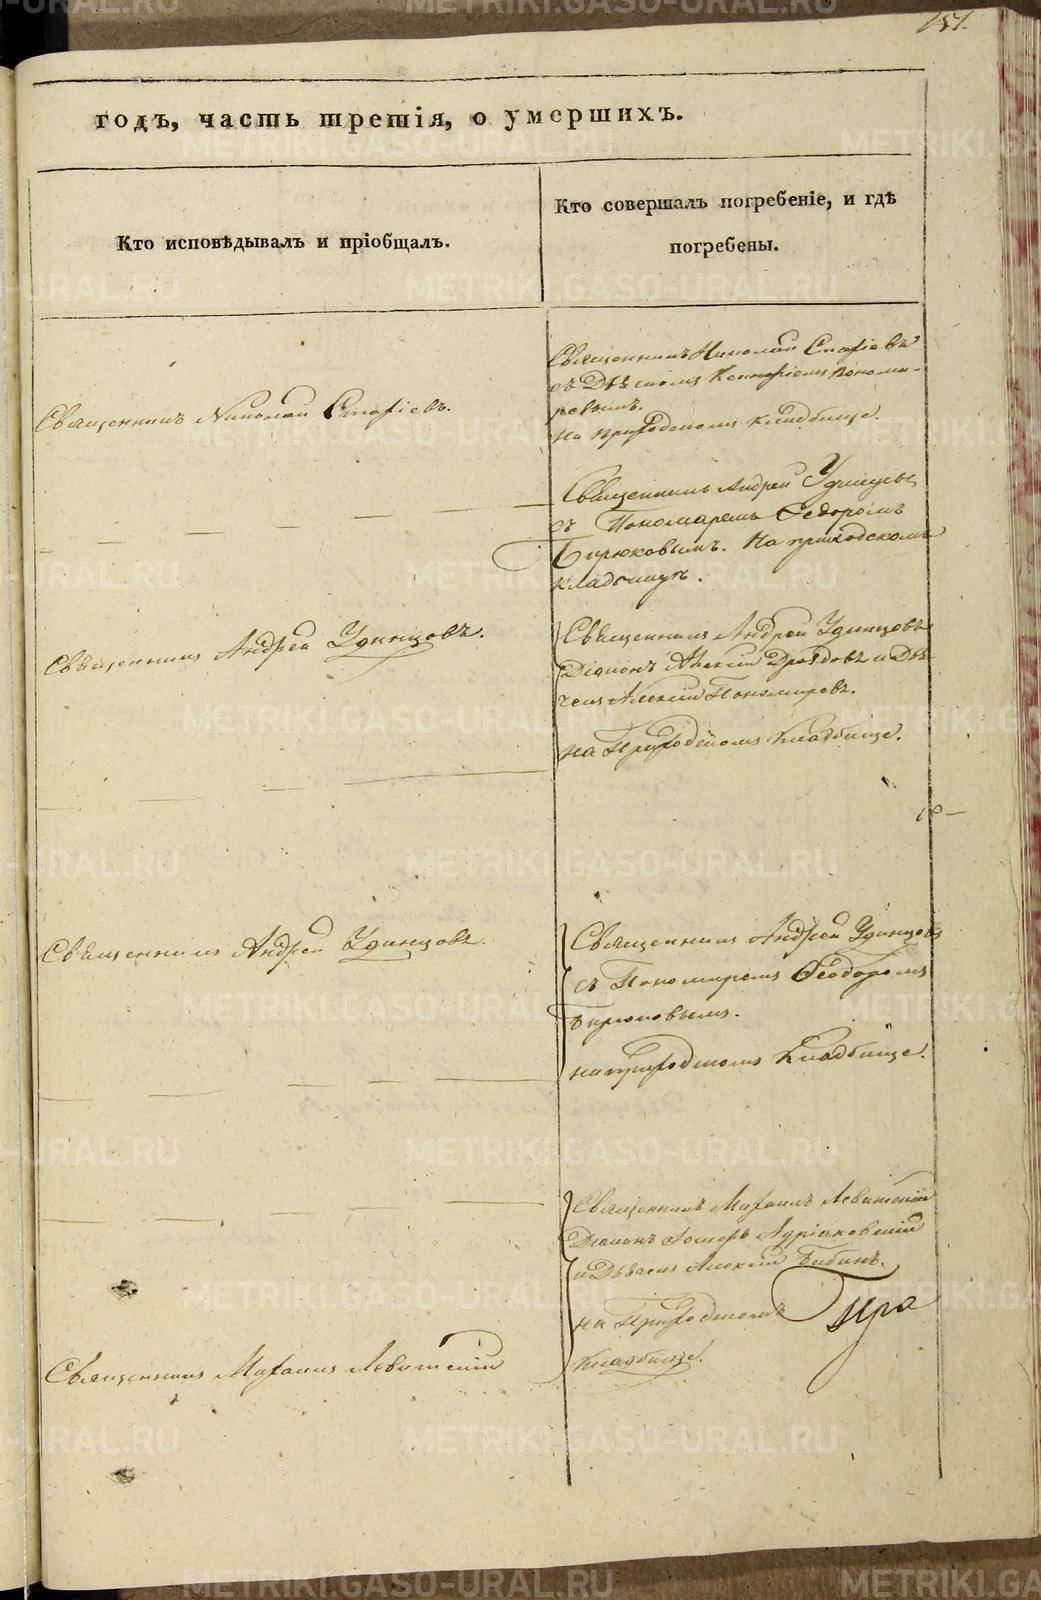 151.
годъ, часть третія, о умершихъ.
Кто исповѣдывалъ и пріобщалъ.
Кто совершалъ погребеніе, и гдѣ
погребены.
Священникъ Николай Стафіевъ.
Священникъ Николай Стафіевъ
съ Дьякомъ Пономаревымъ.
На приходскомъ кладбище.
Священникъ Андрей Удинцовъ
съ Пономаремъ Федоромъ
Бирюковымъ. На приходскомъ
кладбищѣ.
Священникъ Андрей Удинцовъ.
Священникъ Андрей Удинцовъ
Діаконъ Алексій Дроздовъ и Дья-
чекъ Алексій Пономаревъ.
на Приходскомъ Кладбище.
Священникъ Андрей Удинцовъ.
Священникъ Андрей Удинцовъ
съ Пономаремъ Феодоромъ
Бирюковымъ.
на приходскомъ Кладбище.
Священникъ Михаилъ Левитскій
Священникъ Михаилъ Левитскій
Діаконъ Адріановскій
и Дьячекъ Алексій Бабинъ.
на Приходскомъ
Кладбище.
METRIKI.GASO-URAL.RU